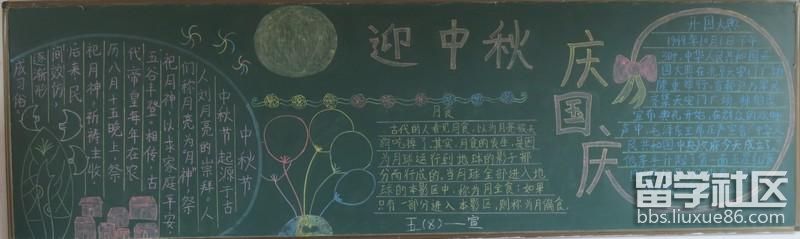 迎中秋
庆国庆
中秋节
中秋节起源于古
人对月亮的崇拜。人
们称月亮为月神，祭
祀月神，以求家庭平安、
五谷丰登。相传，古
代帝皇每年在农
历八月十五晚上，祭
祀月神，祈祷丰收
后来民
间效仿，
逐渐形
成习俗
月食
古代的人看见月食，以为月亮被天
狗吃掉了，其实，月食的发生，是因
为月球运行到地球的影子部
分而行成的。当月球全部进入地
球的本影区中，称为月全食；如果
只有一部分进入本影区，则称为月偏食。
五(8)——宣
开国大典
1949年10月1日下午
3时，中华人民共和国开
国大典在北京天安门广场
隆重举行
天安门广场，林伯渠
宣布典礼开始，在群众的欢呼
声中，毛泽东主席庄严宣告：中华
民共和国中央 政府今天成立了
留学社区
bbs.liuxue86.com